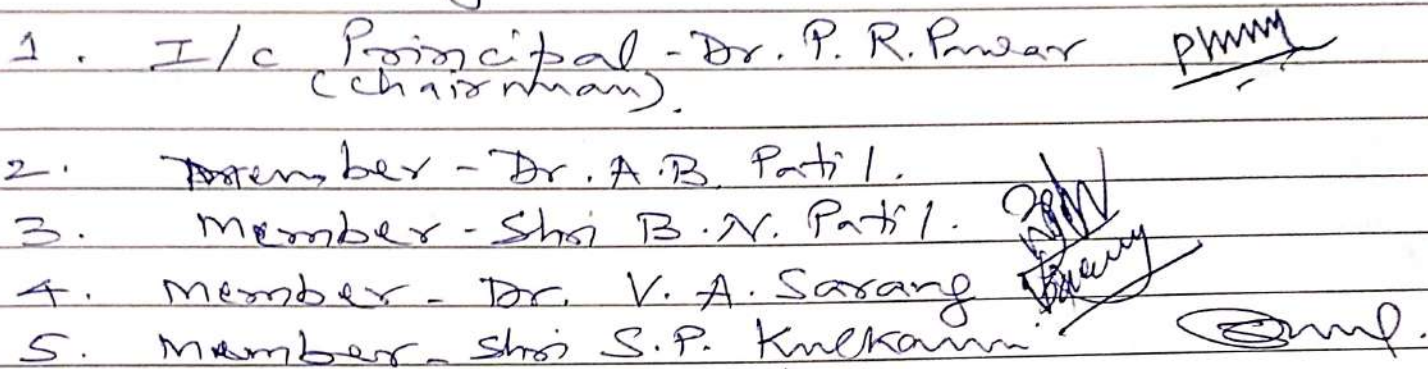 1. I/c Principal - Dr. P. R. Pawar
(Chairman).
2. Member - Dr. A.B. Patil.
3. Member - Shri B.N. Patil.
4. Member - Dr. V. A. Sarang
5. Member - Shri S.P. Kulkarni